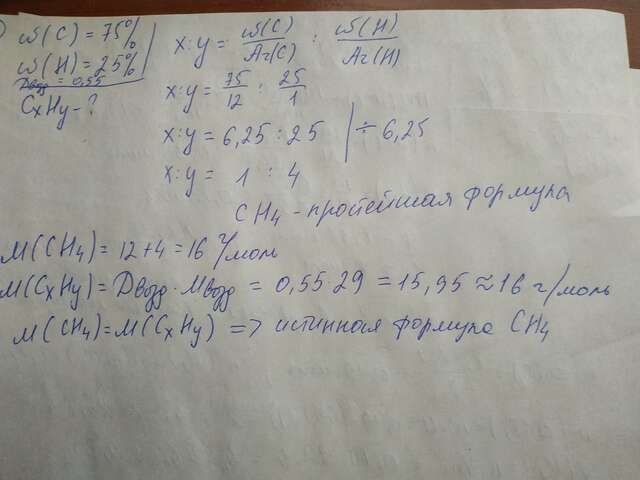 ω(C) = 75%
ω(H) = 25%
Dвозд = 0,55
CxHy - ?
x:y = ω(C)/Ar(C) : ω(H)/Ar(H)
x:y = 75/12 : 25/1
x:y = 6,25 : 25 | ÷ 6,25
x:y = 1 : 4
CH4 - простейшая формула
M(CH4) = 12+4 = 16 г/моль
M(CxHy) = Dвозд · Mвозд = 0,55 29 = 15,95 ≈ 16 г/моль
M(CH4) = M(CxHy) => истинная формула CH4